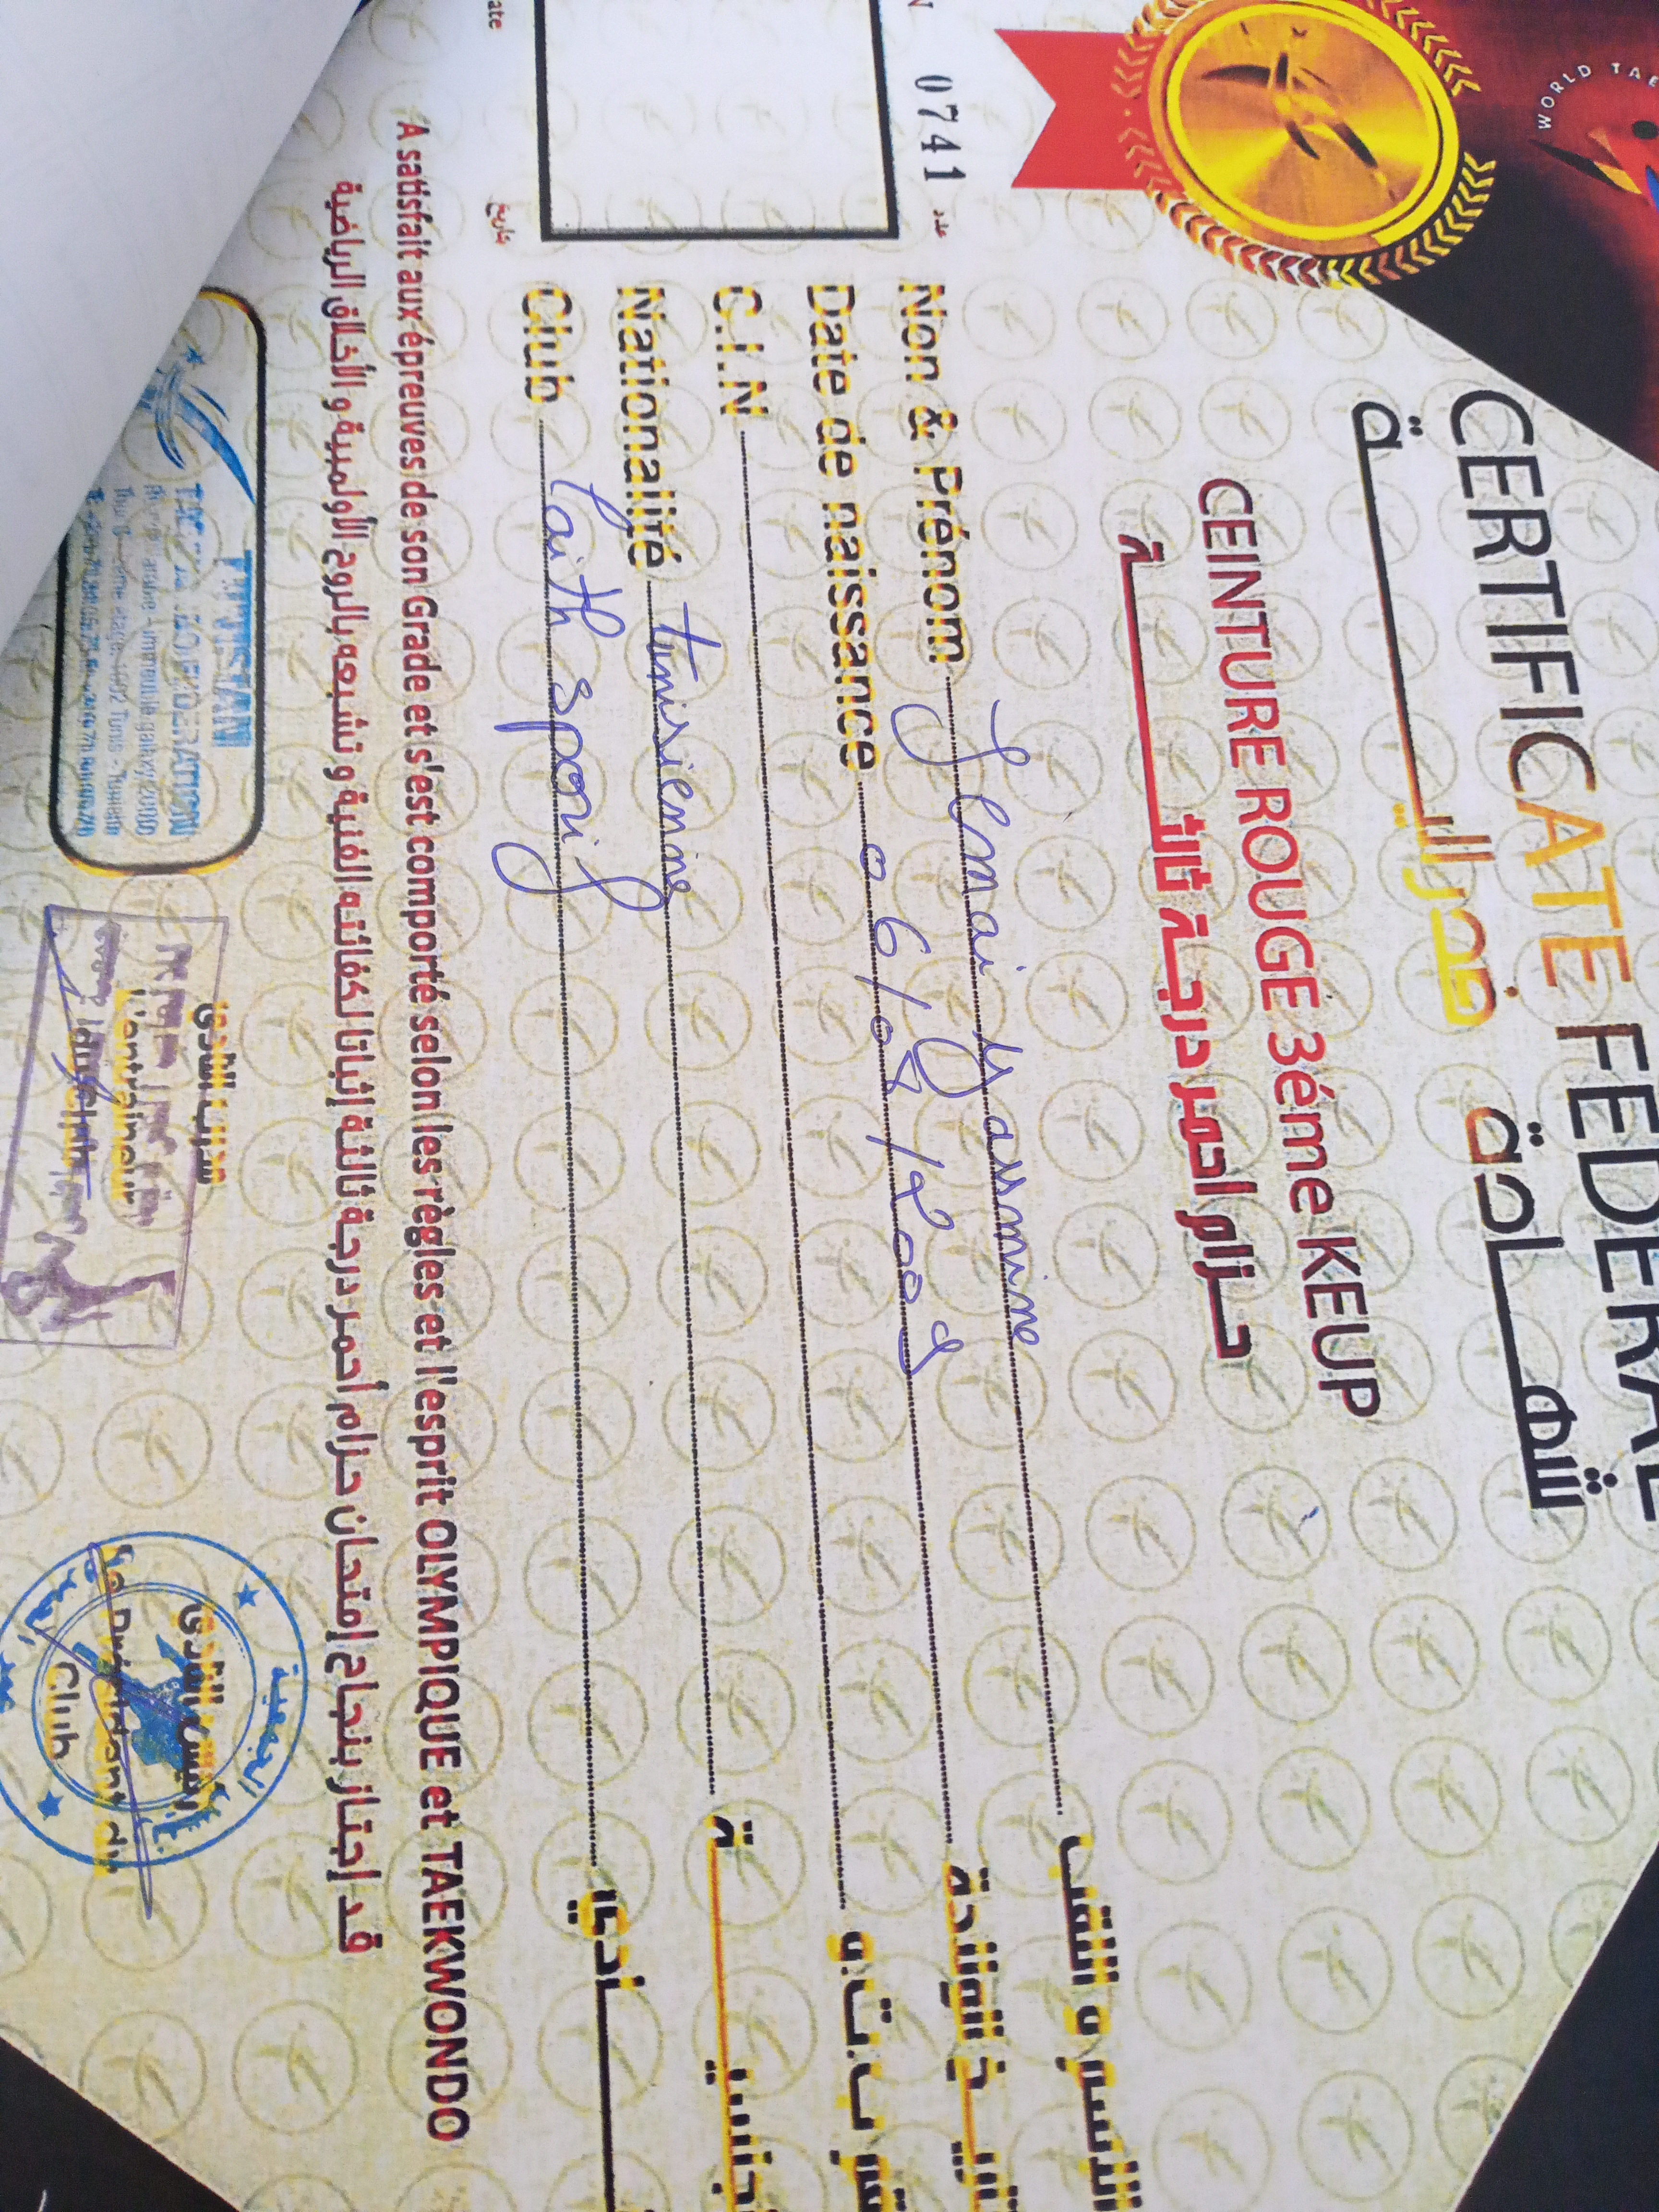 WORLD TAE
CERTIFICATE FEDERAL
شهادة فدرالية
CEINTURE ROUGE 3éme KEUP
حزام احمر درجة ثالثة
N 0741 عدد
Non & Prénom Smai Yassmine الاسم و اللقب
Date de naissance 06/08/200 تاريخ الولادة
C.I.N ب.ت.و
Nationalité tunisienne جنسية
Club laith sport نادي
ate تاريخ
A satisfait aux épreuves de son Grade et s'est comporté selon les règles et l'esprit OLYMPIQUE et TAEKWONDO
قد إجتاز بنجاح إمتحان حزام أحمر درجة ثالثة إثباتا لكفائته الفنية و تشبعه بالروح الأولمبية و الأخلاق الرياضية
TUNISIAN
TAEKWONDO FEDERATION
مدرب النادي
L'entraineur
du Club
رئيس النادي
Le Président du
Club